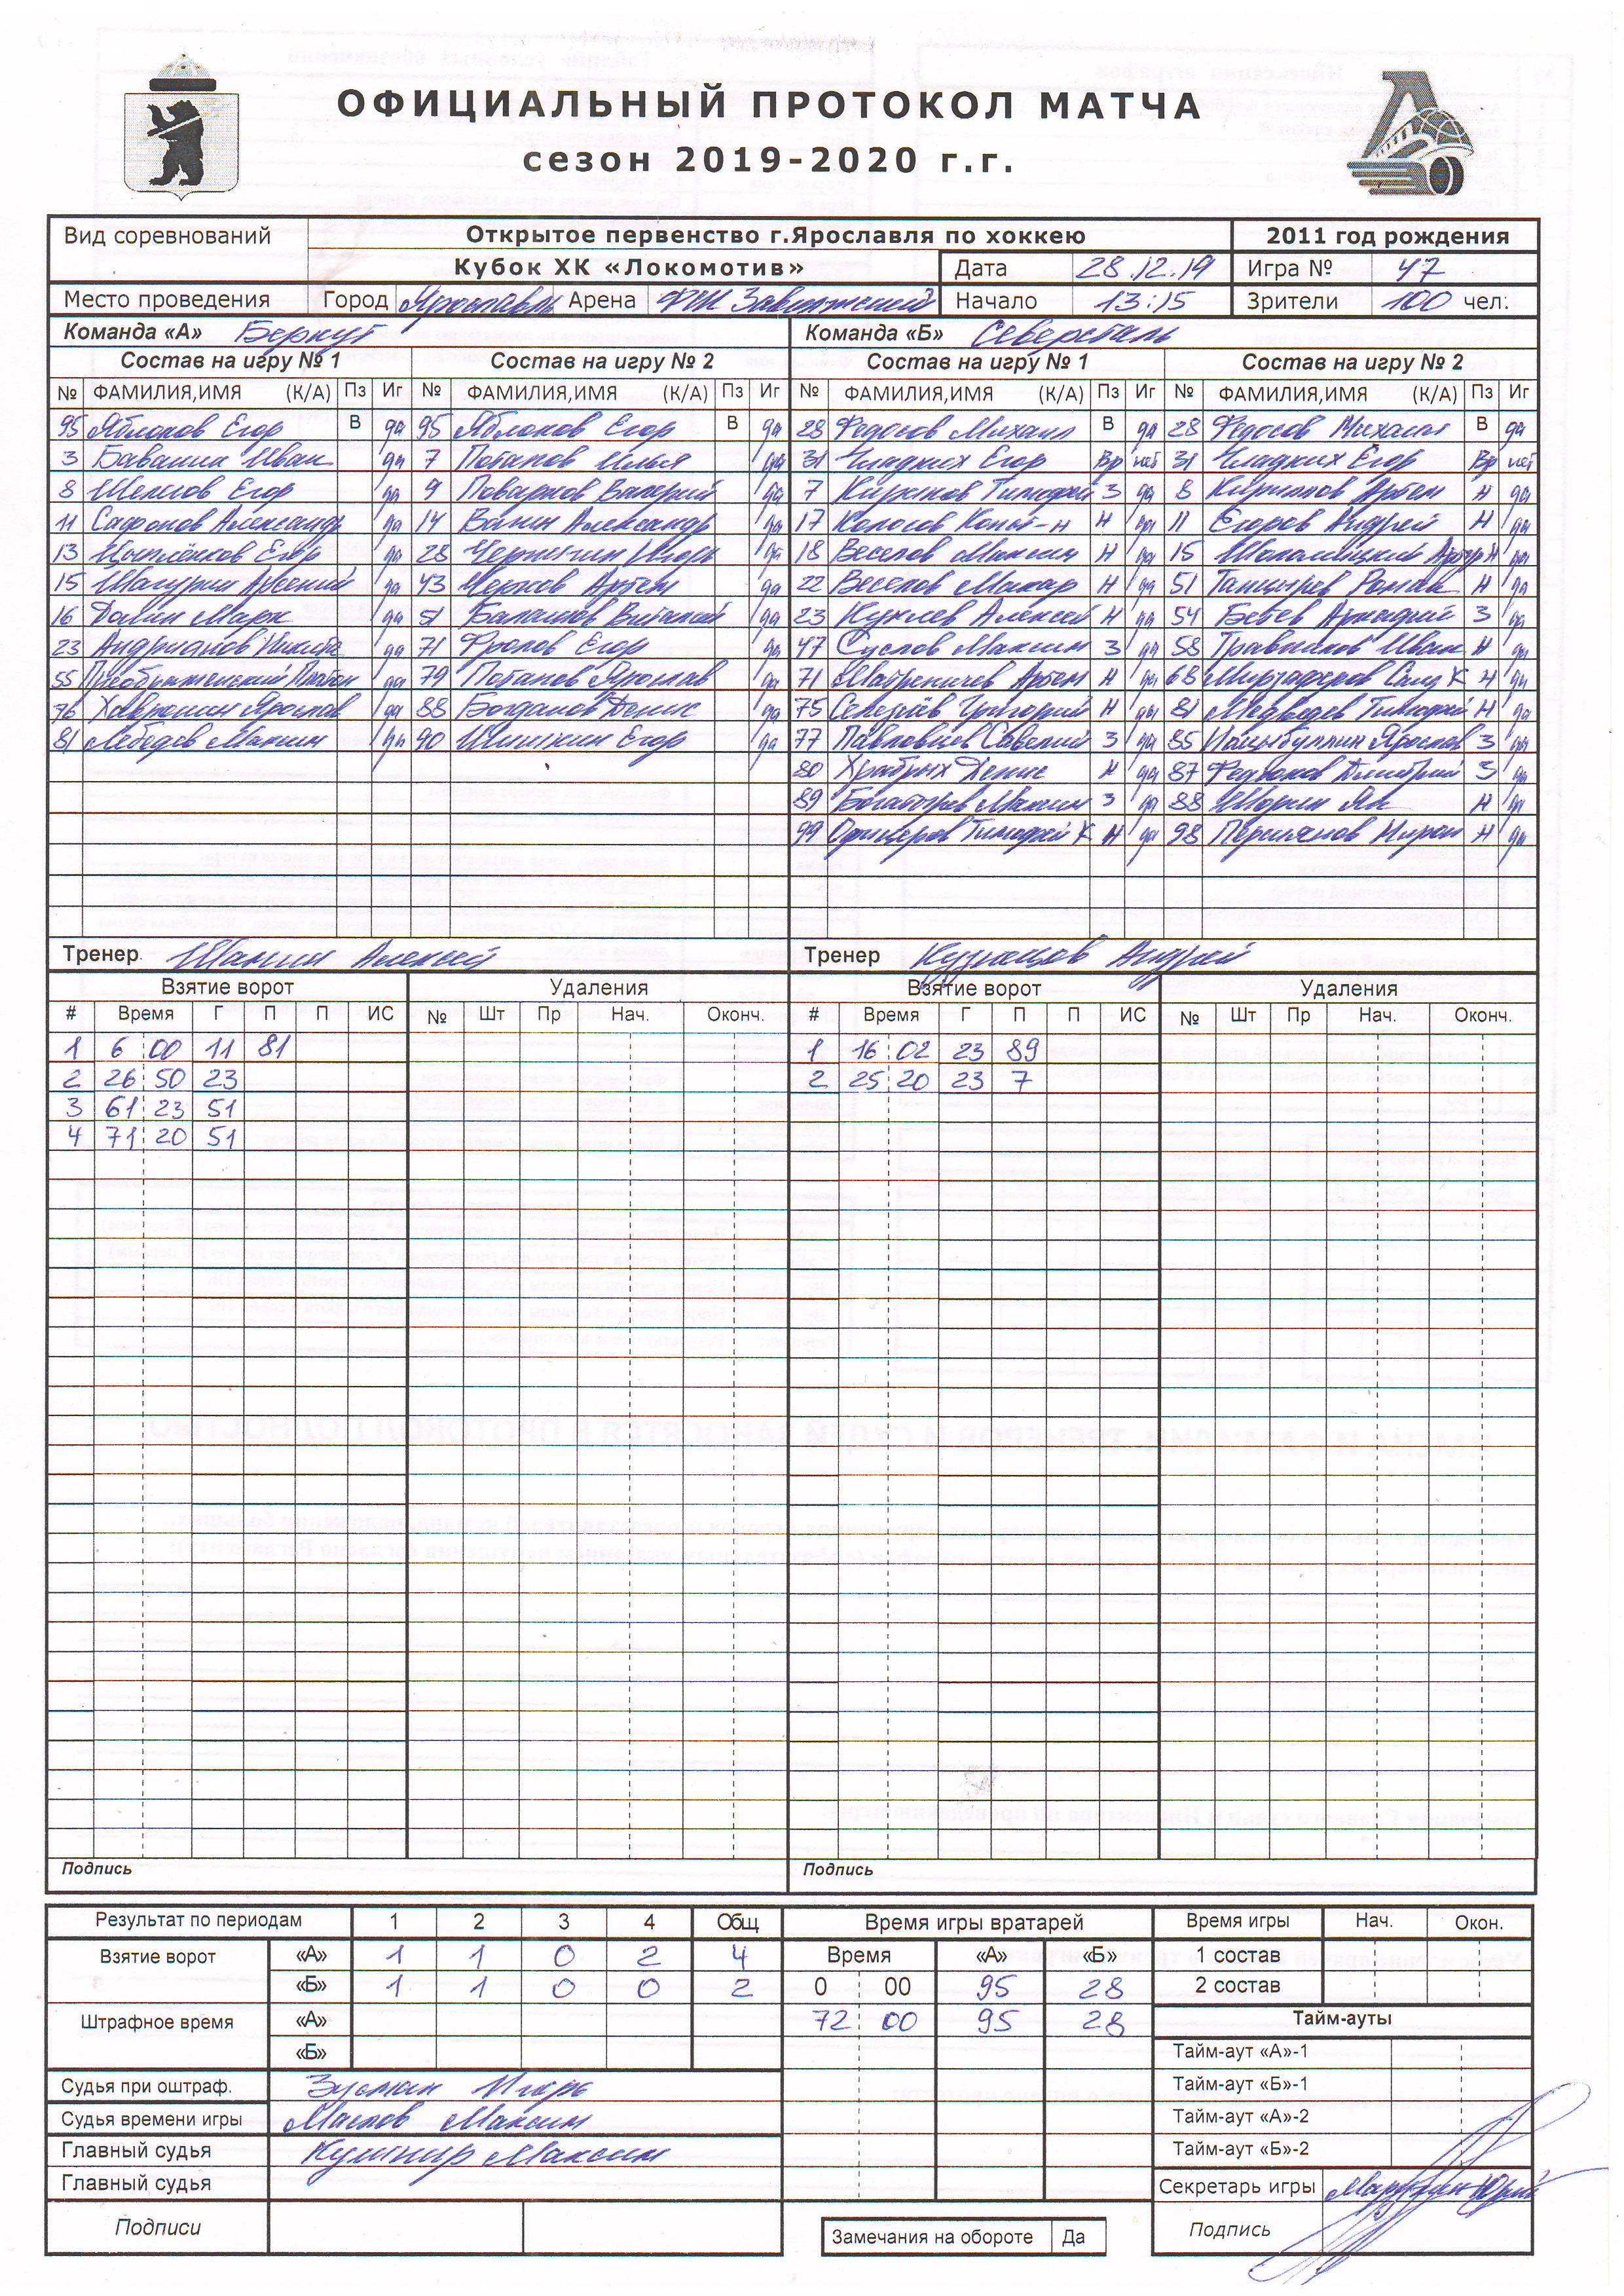 ОФИЦИАЛЬНЫЙ ПРОТОКОЛ МАТЧА
сезон 2019-2020 г.г.
Вид соревнований Открытое первенство г.Ярославля по хоккею 2011 год рождения
Кубок ХК «Локомотив» Дата 28.12.19 Игра № 47
Место проведения Город Ярославль Арена Начало 13:15 Зрители 100 чел.
Команда «А» Беркут Команда «Б» Северсталь
Состав на игру № 1 Состав на игру № 2 Состав на игру № 1 Состав на игру № 2
№ ФАМИЛИЯ,ИМЯ (К/А) Пз Иг № ФАМИЛИЯ,ИМЯ (К/А) Пз Иг № ФАМИЛИЯ,ИМЯ (К/А) Пз Иг № ФАМИЛИЯ,ИМЯ (К/А) Пз Иг
95 Яблоков Егор В да 95 Яблоков Егор В да 28 Федосов Михаил В да 28 Федосов Михаил В да
3 Иван да 7 Потапов Илья да 31 Гладких Егор Вр нет 31 Гладких Егор Вр нет
8 Егор да 9 Поварков Валерий да 7 Тимофей З да 8 Кириллов Артем Н да
11 Сафонов Александр да 14 Ванин Александр да 17 Колосов Н да 11 Егоров Андрей Н да
13 Цыплёнков Егор да 28 Игорь да 18 Веселов Максим Н да 15 Артур Н да
15 Арсений да 43 Артем да 22 Веселов Макар Н да 51 Роман Н да
16 Марк да 51 Балашов Виталий да 23 Алексей Н да 54 Аркадий З да
23 Андрианов Никита да 71 Фролов Егор да 47 Суслов Максим З да 58 Травников Иван Н да
55 Преображенский Платон да 79 Потапов Ярослав да 71 Артем Н да 68 К Н да
76 Ярослав да 88 Богданов Денис да 75 Селезнёв Григорий Н да 81 Медведев Тимофей Н да
81 Лебедев Максим да 90 Шишкин Егор да 77 Савелий З да 85 Ярослав З да
80 Храбрых Денис Н да 87 Дмитрий З да
89 Богатырев Максим З да 88 Шорин Ян Н да
99 Офицеров Тимофей К Н да 98 Мирон Н да
Тренер Шанин Алексей Тренер Кузнецов Андрей
Взятие ворот Удаления Взятие ворот Удаления
# Время Г П П ИС № Шт Пр Нач. Оконч. # Время Г П П ИС № Шт Пр Нач. Оконч.
1 6 00 11 81 1 16 02 23 89
2 26 50 23 2 25 20 23 7
3 61 23 51
4 71 20 51
Подпись Подпись
Результат по периодам 1 2 3 4 Общ Время игры вратарей Время игры Нач. Окон.
Взятие ворот «А» 1 1 0 2 4 Время «А» «Б» 1 состав
«Б» 1 1 0 0 2 0 00 95 28 2 состав
Штрафное время «А» 72 00 95 28 Тайм-ауты
«Б» Тайм-аут «А»-1
Судья при оштраф. Игорь Тайм-аут «Б»-1
Судья времени игры Маслов Максим Тайм-аут «А»-2
Главный судья Кушнир Максим Тайм-аут «Б»-2
Главный судья Секретарь игры Юрий
Подписи Замечания на обороте Да Подпись